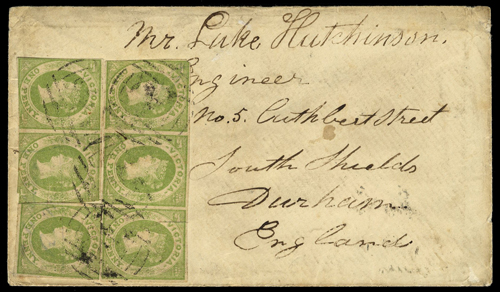 Mr. Luke Hutchinson.
Engineer
No. 5. Cuthbert Street
South Shields
Durham
England
VICTORIA
VICTORIA
VICTORIA
VICTORIA
VICTORIA
VICTORIA